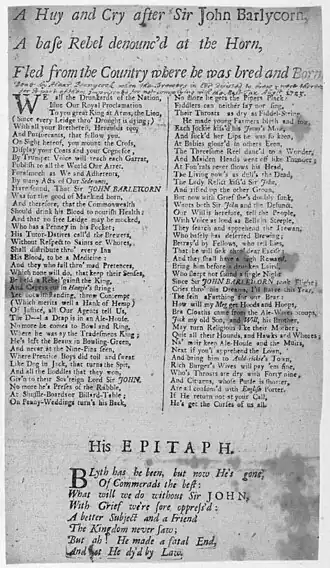 A Huy and Cry after Sir John Barlycorn,
A base Rebel denounc'd at the Horn,
Fled from the Country where he was bred and Born
WE all the Drunkards of the Nation,
Issue Our Royal Proclamation
To you great King at Arms, the Lion,
(Since every Lridge thro' Drought is dying;)
With all your Brethren, Heraulds too,
And Pursuevants, that follow you.
On Sight hereof, you mount the Cross,
Display your Coats and your Cognosce,
By Trumpet Voice will reach each Garrat,
Publish to all the World Our Arret.
Forasmuch as We and Adherents,
by Many Acts of Our
Have found, That Sir JOHN BARLEYCORN
Was for the good of Mankind born,
And therefore, that the Commonwealth
Should drink his Blood to nourish Health;
And that no free Liedge may be mocked,
Who has a Penney in his Pocket;
His Tutor-Deities call'd the Brewers,
Without Respect to Saints or Whores,
Shall distribute thro' every Inn
His Blood, to be a Medicine:
And they who fail thro' mad Pretences,
Which none will do, that keep their Senses,
Be held a Rebel against the King,
And Deserves in Jeopy's string:
Let outstanding, thro' Contempt
(Which merits well a Band of Hemp)
Of Justice, all Our Agents tell Us,
Tie D--l a Drap is in an Ale-house.
No more he comes to Bowl and Ring,
Where he was at the Tradesmen's King;
He's left the Beaux in Bowling-Green,
And never at the Nine-Pins seen,
Where Prentice Boys did toil and sweat
Like Dog in Jack, that turns the Spit,
And all the Boddles that they won,
Giv'n to their Sov'reign Lord Sir JOHN.
No more he's Prefes of the Rabble,
At Shuffle-Board or Billard-Table;
On Penny-Weddings turn's his Back,
No more he gets the Pipers Plack:
Fidlers can neither say nor sing,
Their Throats as dry as Fiddle-String.
He made young Farmers blith and
Each Jockie kiss'd his Mary,
And suck'd her Lips as he was fo keen,
As Babies glour'd in others Een.
The Threesome Reel danc'd to a Wonder,
And Maiden Heads went off like Thunder;
At Fun'rals never shows his Head,
The Living now as dull's the Dead,
The Lady Relict kiss'd Sir John,
And rissed up the other Groan,
But now with Grief she's doubly sunk,
Wants both Sir John and the Defunct.
Our Will is herefore, tell the People,
With Voice as loud as Bells in Steeple,
They search and apprehend the Trewan,
Who basely has deserted Brewing;
Betray'd by Fellows, who tell Lies,
That he will sick thro' dear Excise;
And they shall have a high Reward,
Bring him before a drunken Laird,
Who slept not sound a single Night
Since Sir JOHN BARLEYCORN took Flight;
Cries thro' his Dreams, I'll loose this Year,
The sein a Farthing for our Bear;
How will my Meg get Hoods and Hoops,
Bra Cloaths came from the Ale-Wives scoups,
And my old Son, and Will, his Brother,
May turn Religious like their Mother;
Quit all their Hounds, and Hawks and Whores;
Na' mair keep Ale-House and the Mures,
Next if you'l apprehend the Lown,
And bring him to Auld-ricker's Town,
Rich Burger's Wives will pay 'em fine,
Who's Throats are dry with Forty nine,
And Citizens, whose Purse is shorter,
Are all confum'd with English Porter.
If He return not at your Call,
He's get the Curses of us all.
His EPITAPH.
BLyth has he been, but now He's gone,
Of Commerads the best:
What will we do without Sir JOHN,
With Grief we're sore oppress'd:
A better Subject and a Friend
The Kingdom never saw;
But ah! He made a fatal End,
And yet He dy'd by Law.